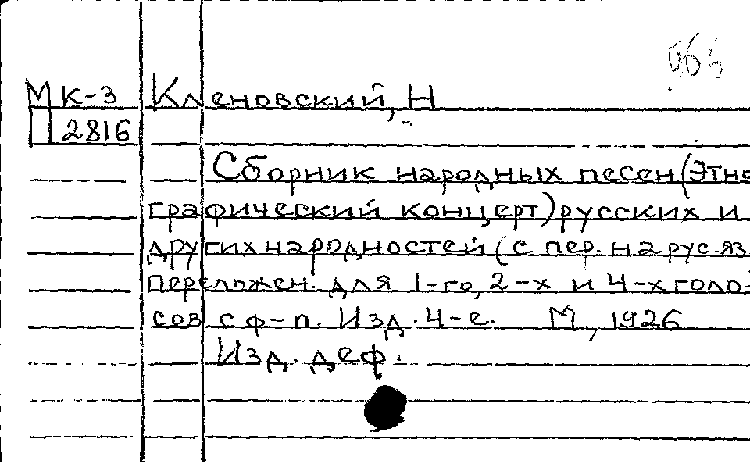 МК-3 Кленовский, Н
П 2816
Сборник народных песен (Этно
графический концерт) русских и
других народностей (с пер. на рус. яз
переложен. для 1-го, 2-х и 4-х голо-
сов с ф-п. Изд. 4-е. М, 1926
Изд. деф.